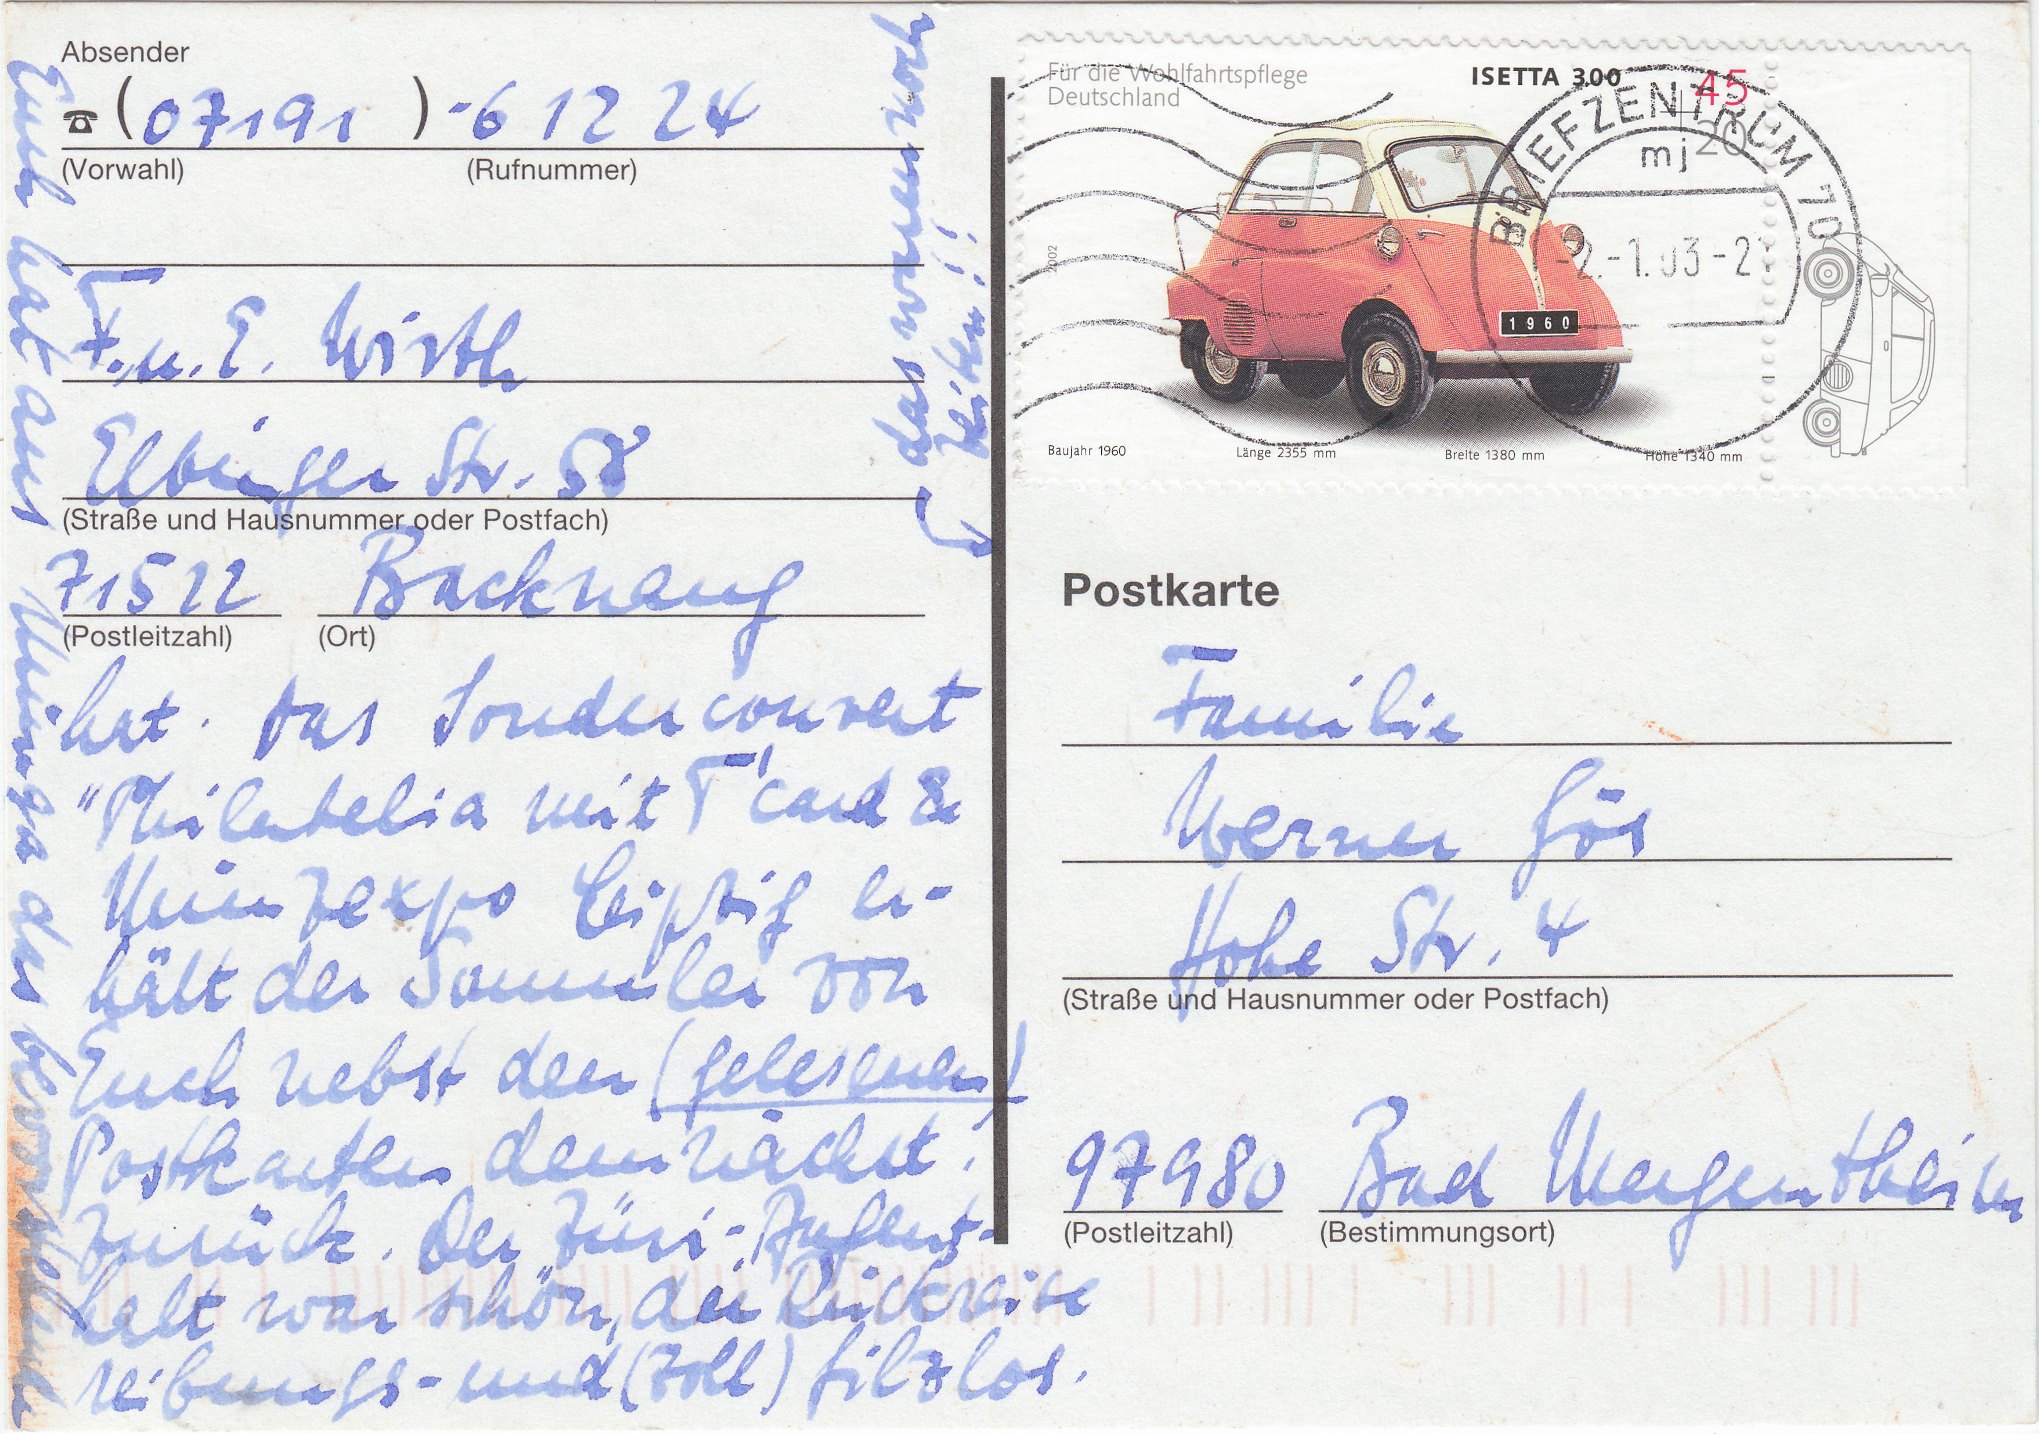 Absender
☎ (07191) -6 12 24
(Vorwahl) (Rufnummer)
F. u. E. Wirth
Elbinger Str. 58
(Straße und Hausnummer oder Postfach)
71522 Backnang
(Postleitzahl) (Ort)
hat. Das Sondercouvert
"Philatelia mit T'card &
Münzexpo Leipzig er-
hält der Sammler von
Euch nebst den (gelesenen)
Postkarten demnächst
zurück. Der Züri-Aufent-
halt war schön, die Rückreise
reibungs- und (zoll) filzlos.
Euch hat aus der
das waren noch
Zeiten!!
Für die Wohlfahrtspflege
Deutschland
ISETTA 300
45
20
2002
1960
Baujahr 1960 Länge 2355 mm Breite 1380 mm Höhe 1340 mm
BRIEFZENTRUM 70
mj
-2.-1.03-2
Postkarte
Familie
Werner Gös
Hohe Str. 4
(Straße und Hausnummer oder Postfach)
97980 Bad Mergentheim
(Postleitzahl) (Bestimmungsort)